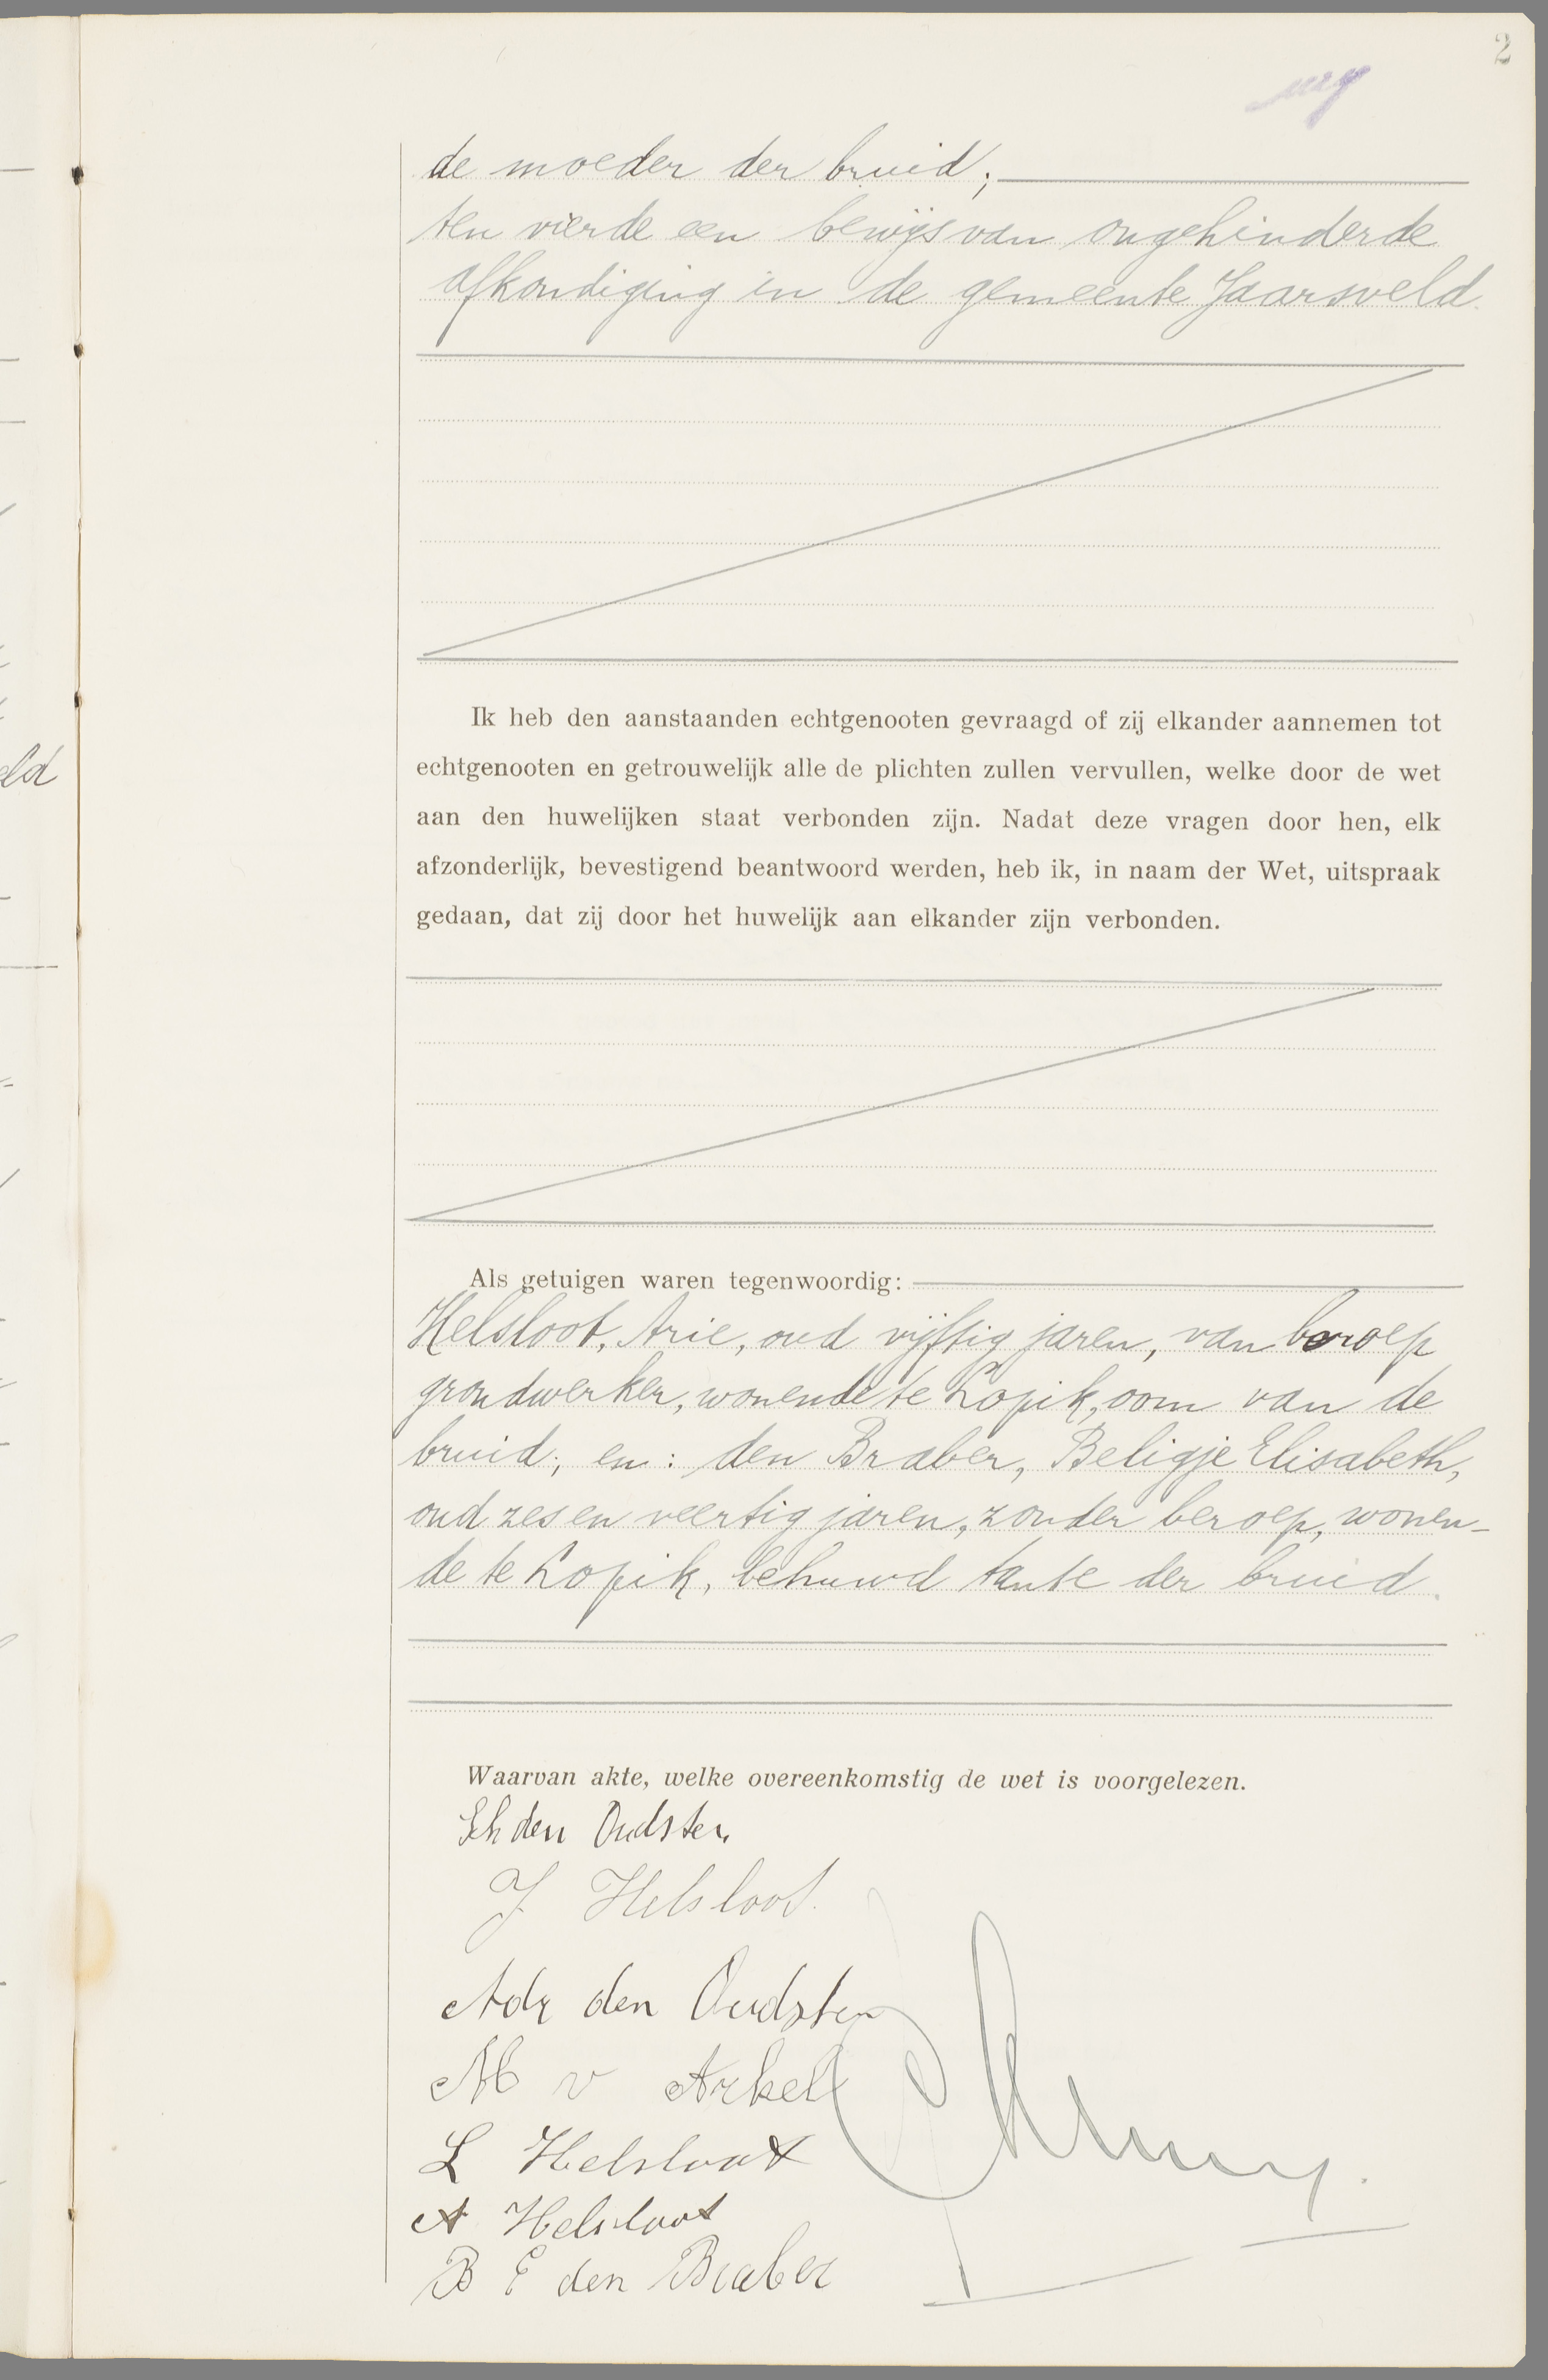 2
de moeder der bruid;
ten vierde een bewijs van ongehinderde
afkondiging in de gemeente Jaarsveld.
eld
Ik heb den aanstaanden echtgenooten gevraagd of zij elkander aannemen tot
echtgenooten en getrouwelijk alle de plichten zullen vervullen, welke door de wet
aan den huwelijken staat verbonden zijn. Nadat deze vragen door hen, elk
afzonderlijk, bevestigend beantwoord werden, heb ik, in naam der Wet, uitspraak
gedaan, dat zij door het huwelijk aan elkander zijn verbonden.
Als getuigen waren tegenwoordig:
Helsloot, Arie, oud vijftig jaren, van beroep
grondwerker, wonende te Lopik, oom van de
bruid; en: den Braber, Beligje Elisabeth,
oud zes en veertig jaren, zonder beroep, wonen-
de te Lopik, behuwd tante der bruid.
Waarvan akte, welke overeenkomstig de wet is voorgelezen.
den Oudsten
J Helsloot.
Adr den Oudsten
M v Arkel
L Helsloot
A Helsloot
B E den Braber